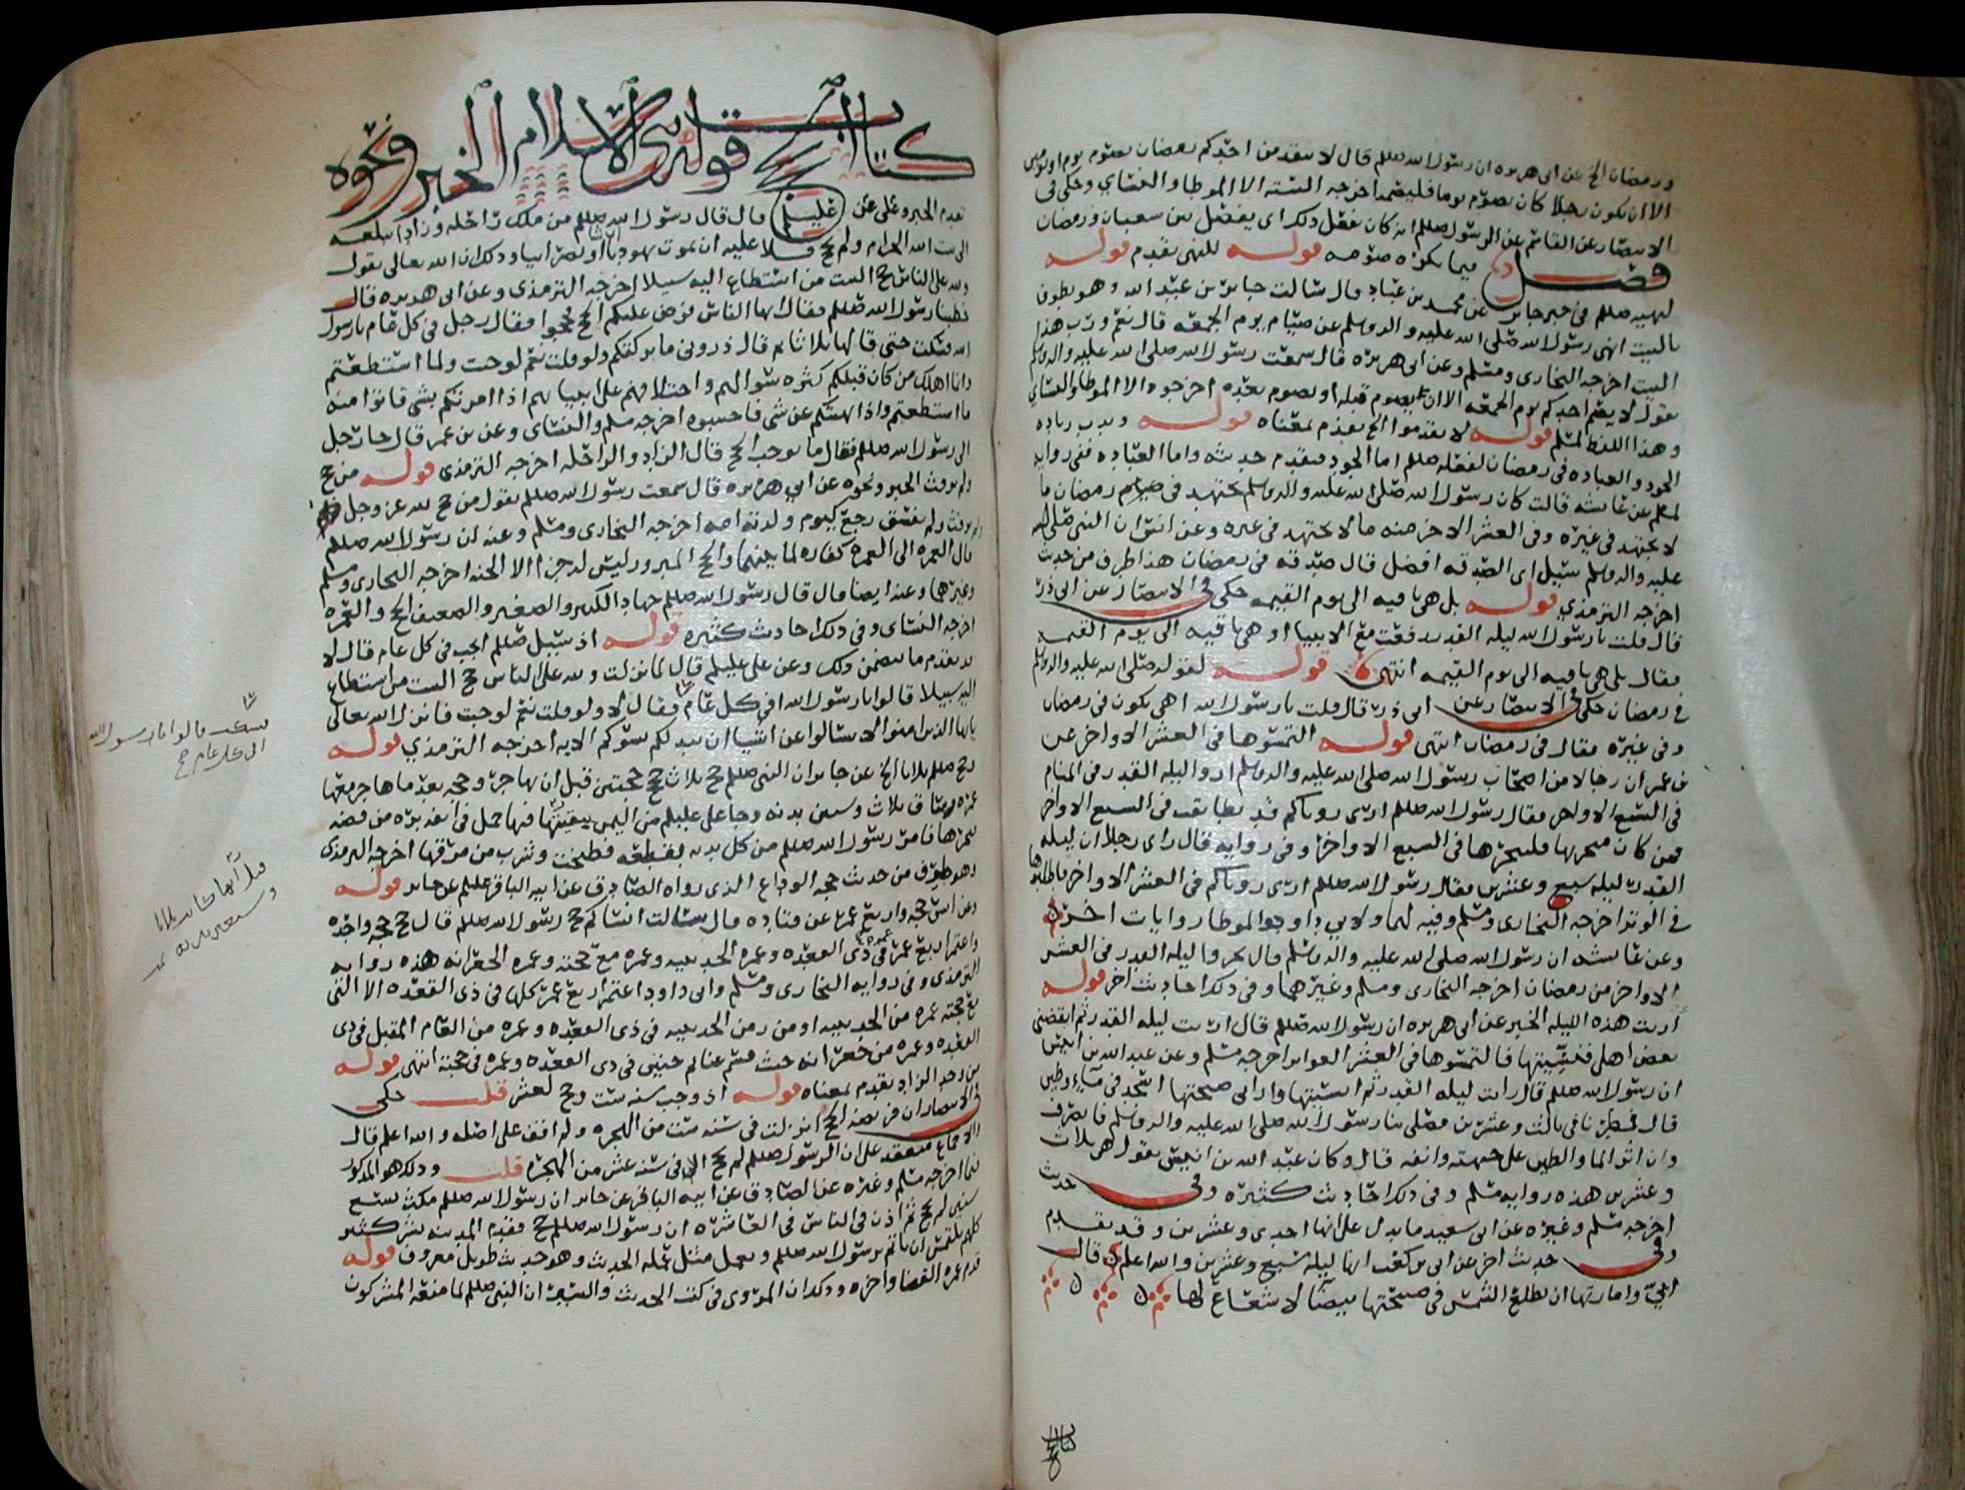 و رمضان الخ عن ابى هريره ان رسول الله صللم قال لا يتقدمن احدكم رمضان بصوم يوم او يومين
الا ان يكون رجلا كان يصوم يوما فليصمه اخرجه السته الا الموطا والنسائي وحكى فى
الانتصار عن القاسم عن الرسول صللم انه كان يفعل ذلك اى يفصل بين شعبان ورمضان
فصل فيما يكره صومه قوله للنهى تقدم قوله
لنهيه صللم فى خبر جابر عن محمد بن عباد قال سالت جابر بن عبد الله وهو يطوف
بالبيت انهى رسول الله صلى الله عليه واله وسلم عن صيام يوم الجمعه قال نعم ورب هذا
البيت اخرجه البخارى ومسلم وعن ابى هريره قال سمعت رسول الله صلى الله عليه واله وسلم
يقول لا يصم احدكم يوم الجمعه الا ان يصوم قبله او يصوم بعده اخرجوه الا الموطا والنسائي
وهذا اللفظ لمسلم قوله لا تقدموا الخ تقدم معناه قوله وندب زياده
الجود والعباده فى رمضان لفعله صللم اما الجود فتقدم حديثه واما العباده ففى روايه
لمسلم عن عائشه قالت كان رسول الله صلى الله عليه واله وسلم يجتهد فى رمضان ما
لا يجتهد فى غيره وفى العشر الاخر منه ما لا يجتهد فى غيره وعن انس ان النبى صلى الله
عليه واله وسلم سئل اى الصدقه افضل قال صدقه فى رمضان هذا طرف من حديث
اخرجه الترمذي قوله بل هى باقيه الى يوم القيمه حكى فى الانتصار عن ابى ذر
قال قلت يا رسول الله ليله القدر رفعت مع الانبيا او هى باقيه الى يوم القيمه
فقال بل هى باقيه الى يوم القيمه انتهى قوله لقوله صلى الله عليه واله وسلم
فى رمضان حكى فى الانتصار عن ابى ذر قال قلت يا رسول الله اهى تكون فى رمضان
وفى غيره فقال فى رمضان انتهى قوله التمسوها فى العشر الاواخر عن
بن عمر ان رجالا من اصحاب رسول الله صلى الله عليه واله وسلم اروا ليله القدر فى المنام
فى السبع الاواخر فقال رسول الله صللم ارى روياكم قد تطابقت فى السبع الاواخر
فمن كان متحريها فليتحرها فى السبع الاواخر وفى روايه قال راى رجل ان ليله
القدر ليله سبع وعشرين فقال رسول الله صللم ارى روياكم فى العشر الاواخر فاطلبوها
فى الوتر اخرجه البخارى ومسلم وفيه لهما ولابي داود والموطا روايات اخر
وعن عائشه ان رسول الله صلى الله عليه واله وسلم قال تحروا ليله القدر فى العشر
الاواخر من رمضان اخرجه البخارى ومسلم وغيرهما وفى ذلك احاديث اخر قوله
اريت هذه الليله الخبر عن ابى هريره ان رسول الله صللم قال اريت ليله القدر ثم ايقضنى
بعض اهلى فنسيتها فالتمسوها فى العشر الغوابر اخرجه مسلم وعن عبد الله بن انيس
ان رسول الله صللم قال رايت ليله القدر ثم انسيتها وارانى صبيحتها اسجد فى ماء وطين
قال فمطرنا فى ثالث وعشرين فصلى بنا رسول الله صلى الله عليه واله وسلم فانصرف
وان اثر الما والطين على جبهته وانفه قال وكان عبد الله بن انيس يقول هى ثلاث
وعشرين هذه روايه مسلم وفى ذلك احاديث كثيره وفى حديث
اخرجه مسلم وغيره عن ابى سعيد ما يدل على انها احدى وعشرين وقد تقدم
وفى حديث اخر عن ابى بن كعب انها ليله سبع وعشرين والله اعلم قال
ابيّ وامارتها ان تطلع الشمس فى صبيحتها بيضا لا شعاع لها
كتاب الحج
كتاب الحج قوله من الاسلام الخبر ونحوه
تقدم الخبر وعن على عليلم قال قال رسول الله صللم من ملك زاحله وزادا تبلغه
الى بيت الله الحرام ولم يحج فلا عليه ان يموت يهوديا او نصرانيا وذلك ان الله تعالى يقول
ولله على الناس حج البيت من استطاع اليه سبيلا اخرجه الترمذى وعن ابى هريره قال
خطبنا رسول الله صللم فقال ايها الناس فرض عليكم الحج فحجوا فقال رجل فى كل عام يا رسول
الله فسكت حتى قالها ثلاثا ثم قال ذرونى ما تركتكم ولو قلت نعم لوجبت ولما استطعتم
وانما اهلك من كان قبلكم كثره سوالهم واختلافهم على انبيائهم اذا امرتكم بشى فاتوا منه
ما استطعتم واذا نهيتكم عن شى فاجتنبوه اخرجه مسلم والنسائى وعن بن عمر قال جا رجل
الى رسول الله صللم فقال ما يوجب الحج قال الزاد والراحله اخرجه الترمذى قوله من حج
ولم يرفث الخبر ونحوه عن ابي هريره قال سمعت رسول الله صللم يقول من حج لله عز وجل
ولم يرفث ولم يفسق رجع كيوم ولدته امه اخرجه البخارى ومسلم وعنه ان رسول الله صللم
قال العمره الى العمره كفاره لما بينهما والحج المبرور ليس له جزا الا الجنه اخرجه البخارى ومسلم
وغيرهما وعنه ايضا قال قال رسول الله صللم جهاد الكبير والصغير والضعيف الحج والعمره
اخرجه النسائى وفى ذلك احاديث كثيره قوله اذ سئل صللم ايجب فى كل عام قال لا
قد تقدم ما يتضمن ذلك وعن على عليلم قال لما نزلت ولله على الناس حج البيت من استطاع
اليه سبيلا قالوا يا رسول الله افى كل عام فقال لا ولو قلت نعم لوجبت فانزل الله تعالى
يايها الذين امنوا لا تسالوا عن اشيا ان تبد لكم تسوكم الايه اخرجه الترمذي قوله
وحج صللم ثلاثا الخ عن جابر ان النبى صللم حج ثلاث حج حجتين قبل ان يهاجر وحجه بعد ما هاجر معها
عمره وساق ثلاث وستين بدنه وجا على عليلم من اليمن ببقيتها فيها جمل فى انفه بره من فضه
فنحرها فامر رسول الله صللم من كل بدنه بقطعه فطبخت وشرب من مرقها اخرجه الترمذى
وهو طرف من حديث حجه الوداع الذى رواه الصادق عن ابيه الباقر عليلم عن جابر قوله
وعن انس حجه واربع عمر عن قتاده قال سالت انسا كم حج رسول الله صللم قال حج حجه واحده
واعتمر اربع عمر عمره فى ذى القعده وعمره الحديبيه وعمره مع حجته وعمره الجعرانه هذه روايه
الترمذى وفى روايه البخارى ومسلم وابى داود اعتمر اربع عمر كلها فى ذى القعده الا التى
مع حجته عمره من الحديبيه او من زمن الحديبيه فى ذى القعده وعمره من العام المقبل فى ذى
القعده وعمره من جعرانه حيث قسم غنائم حنين فى ذى القعده وعمره فى حجته انتهى قوله
من وجد الزاد تقدم معناه قوله اذ وجب سنه ست وحج لعشر قلت حكى
فى الانتصار ان فريضه الحج انزلت فى سنه ست من الهجره ولم اقف على اصله والله اعلم قال
والاجماع منعقد على ان الرسول صللم لم يحج الا فى سنه عشر من الهجره قلت وذلك هو المذكور
فيما اخرجه مسلم وغيره عن الصادق عن ابيه الباقر عن جابر ان رسول الله صللم مكث تسع
سنين لم يحج ثم اذن فى الناس فى العاشره ان رسول الله صللم حج فقدم المدينه بشر كثير
كلهم يلتمس ان ياتم برسول الله صللم ويعمل مثل عمله الحديث وهو حديث طويل معروف قوله
قدم عمره القضا واخره وذلك ان المروى فى كتب الحديث والسير ان النبى صللم لما منعه المشركون